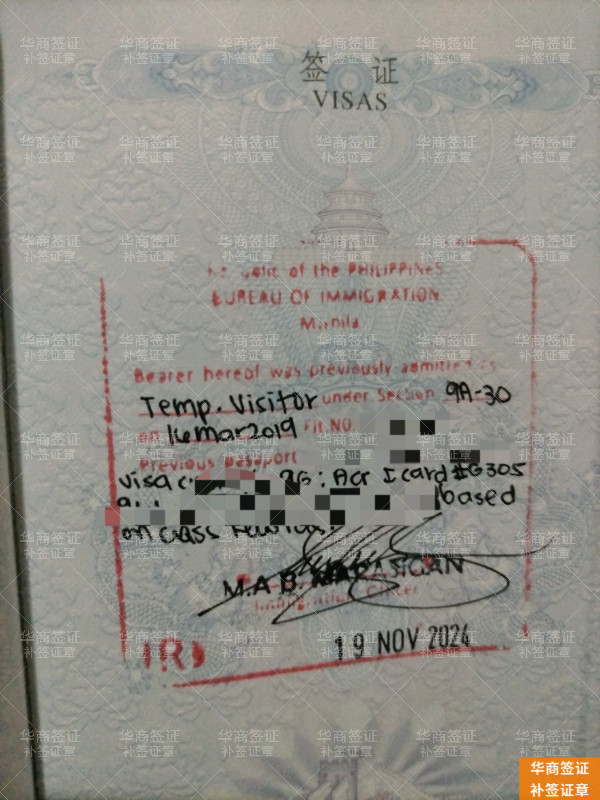 签 证
VISAS
of the PHILIPPINES
BUREAU OF IMMIGRATION
Manila
Bearer hereof was previously admitted as
Temp. Visitor under Section 9A-30
on 16mar2019 Flt NO.
Previous passport
visa : Acr I card #G305
based
on
M.A B.
Immigration Officer
(R) 19 NOV 2024
华商签证
补签证章